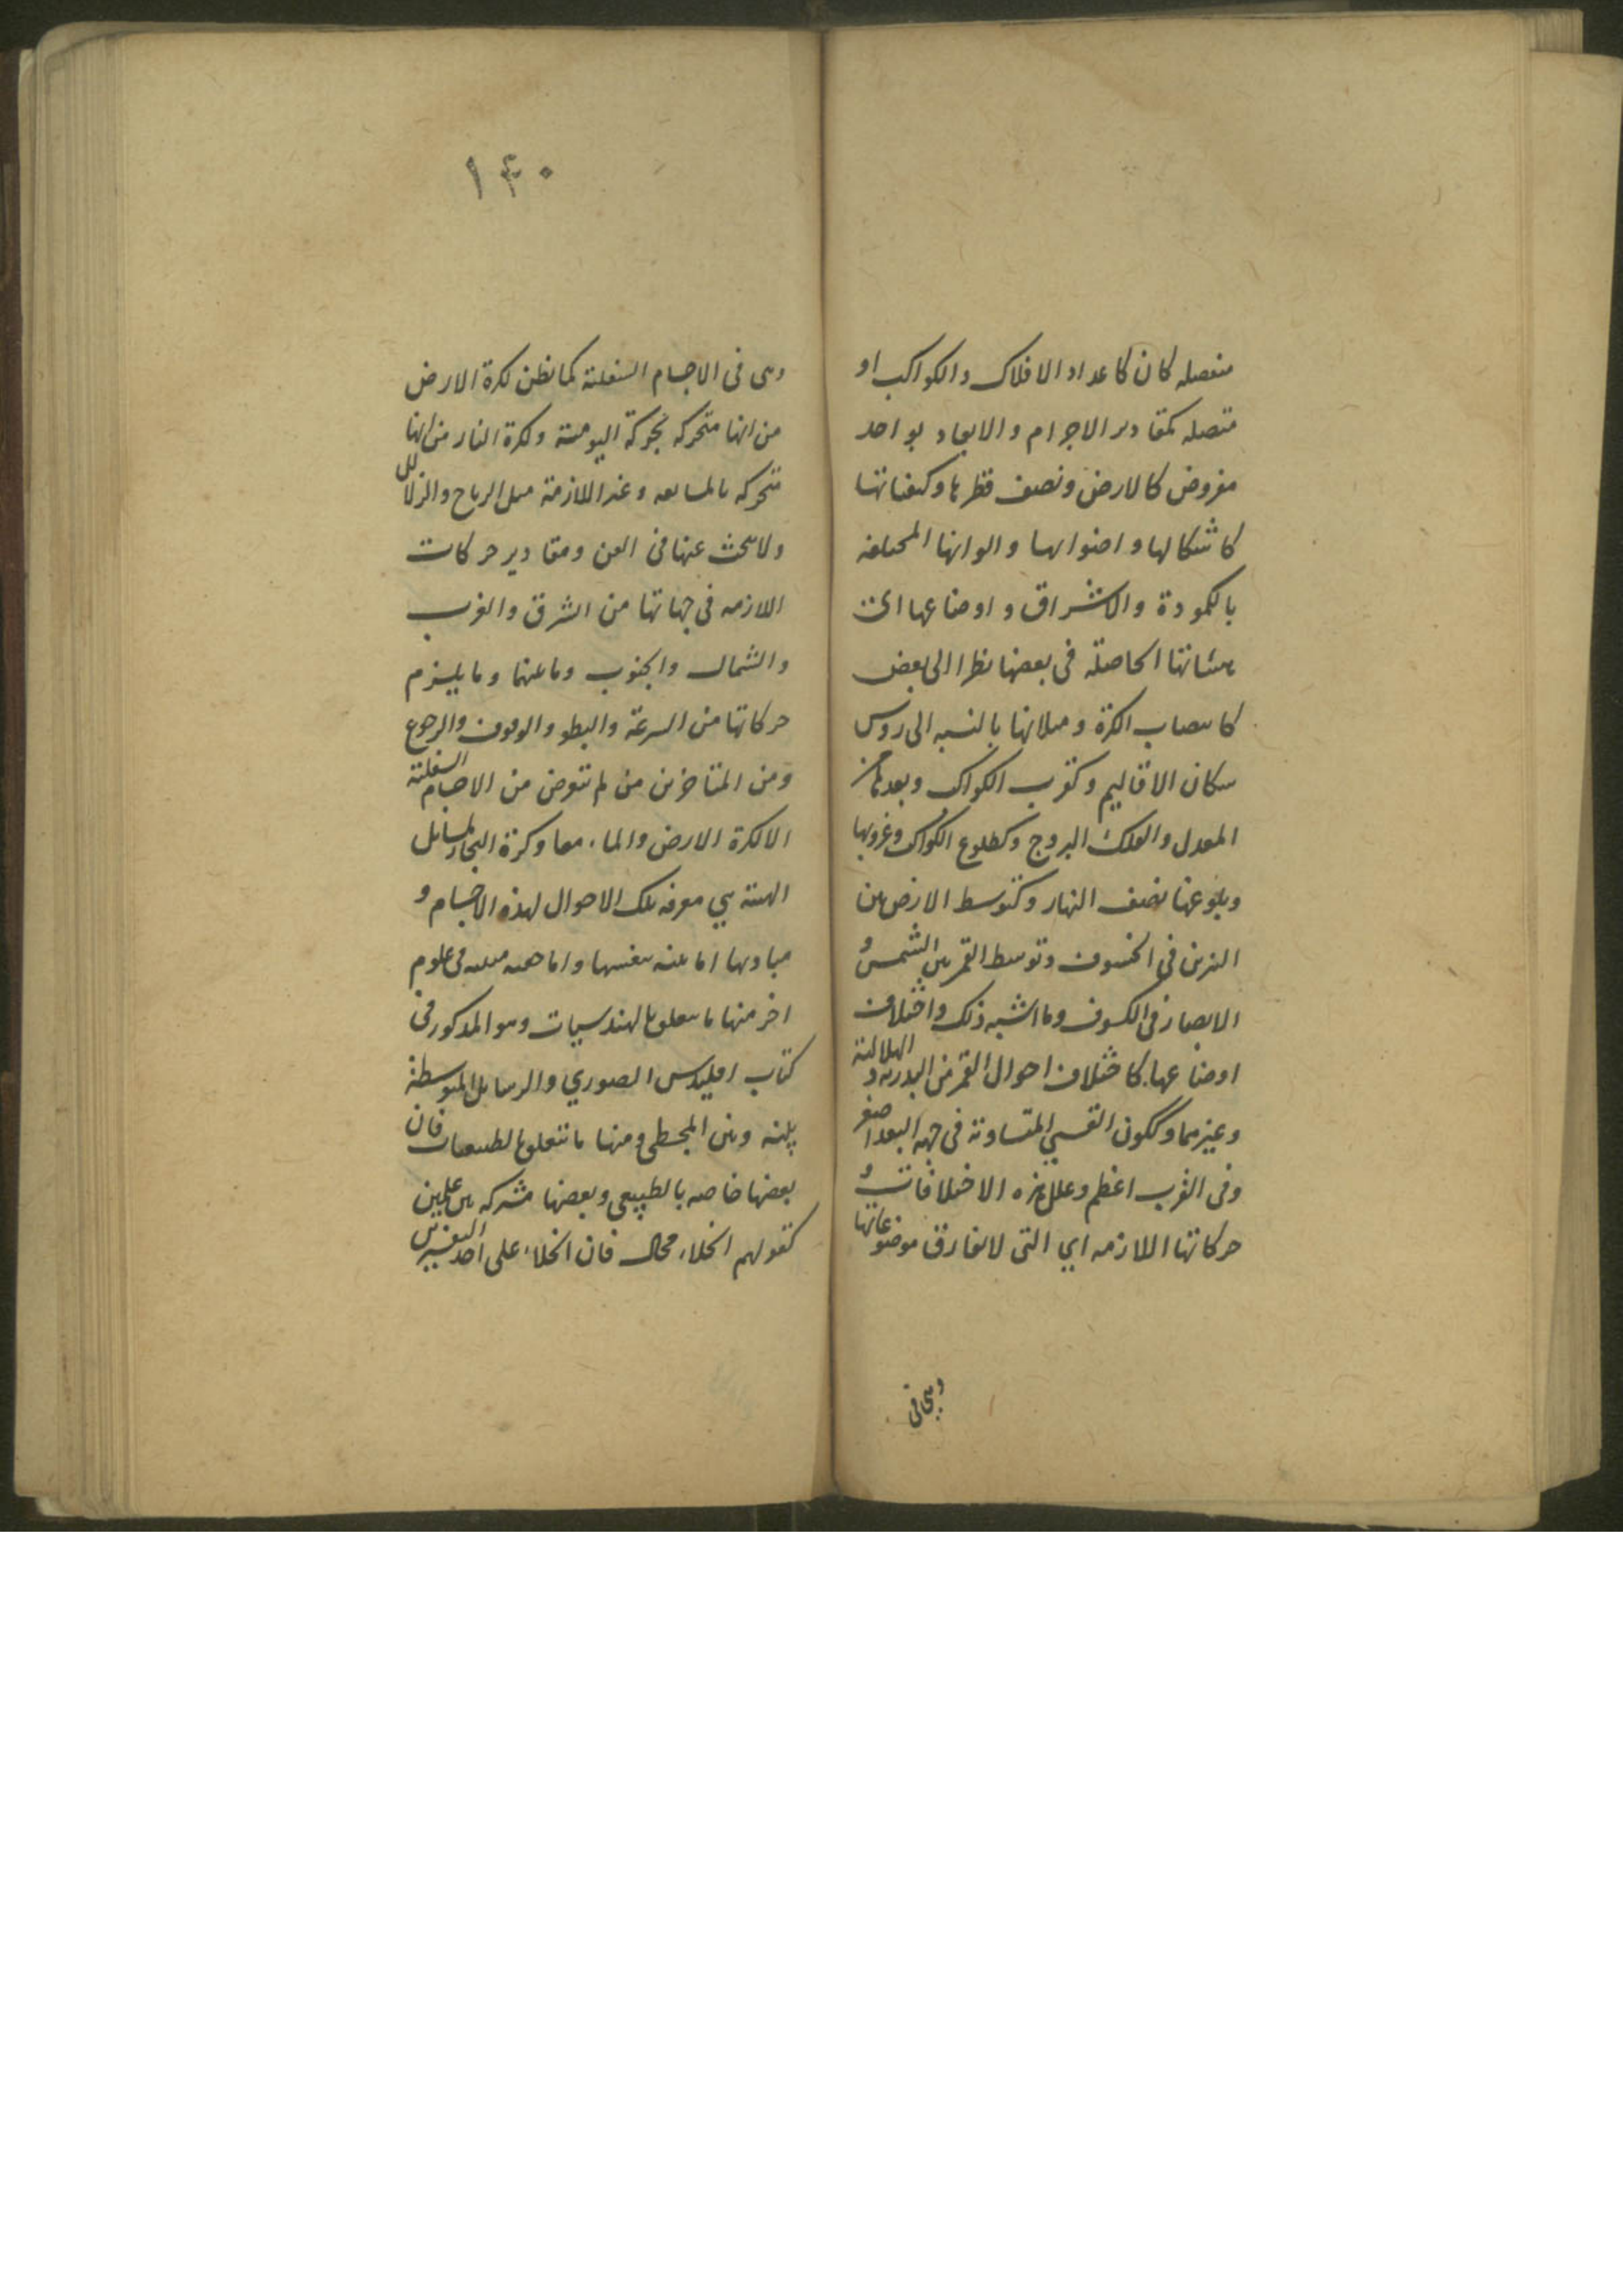 منفصله كان كاعداد الافلاك والكواكب او
متصله كمقادير الاجرام والابعاد بواحد
مفروض كالارض ونصف قطرها وكيفياتها
كاشكالها واضوايها والوانها المختلفه
بالكمودة والاشراق واوضاعها اى
هيئاتها الحاصلة فى بعضها نظرا الى بعض
كانتصاب الكرة وميلانها بالنسبه الى روس
سكان الاقاليم وكقرب الكواكب وبعدها عن
المعدل والفلك البروج وكطلوع الكواكب وغروبها
وبلوغها نصف النهار وكتوسط الارض بين
النيرين فى الخسوف وتوسط القمر بين الشمس و
الابصار فى الكسوف وما اشبه ذلك واختلاف
اوضاعها كاختلاف احوال القمر من البدرية و الهلالية
وغيرهما وككون القسي المتساوية فى جهه البعد اصغر
وفى القرب اعظم وعلل هذه الاختلافات و
حركاتها اللازمه اي التى لا تفارق موضوعاتها
وهى فى
١۴٠
وهى فى الاجسام السفلية كما يظن لكرة الارض
من انها متحركه بحركة اليومية ولكرة النار من انها
متحركه بالمتابعه وغير اللازمة مثل الرياح والزلازل
ولا يبحث عنها فى الفن ومقادير حركات
اللازمه فى جهاتها من الشرق والغرب
والشمال والجنوب وما عنهما وما يلزم
حركاتها من السرعة والبطو والوقوف والرجوع
ومن المتاخرين من لم يتعرض من الاجسام السفلية
الا لكرة الارض والماء معا وكرة البخار لمسائل
الهيئة هي معرفه تلك الاحوال لهذه الاجسام و
مباديها اما بينه بنفسها واما مبينه فى علوم
اخر منها ما يتعلق بالهندسيات وهو المذكور فى
كتاب اقليدس الصوري والرسائل المتوسطة
بينه وبين المجسطى ومنها ما يتعلق بالطبيعيات فان
بعضها خاصه بالطبيعى وبعضها مشتركه بين علمين
كقولهم الخلاء محال فان الخلاء على احد التفسيرين